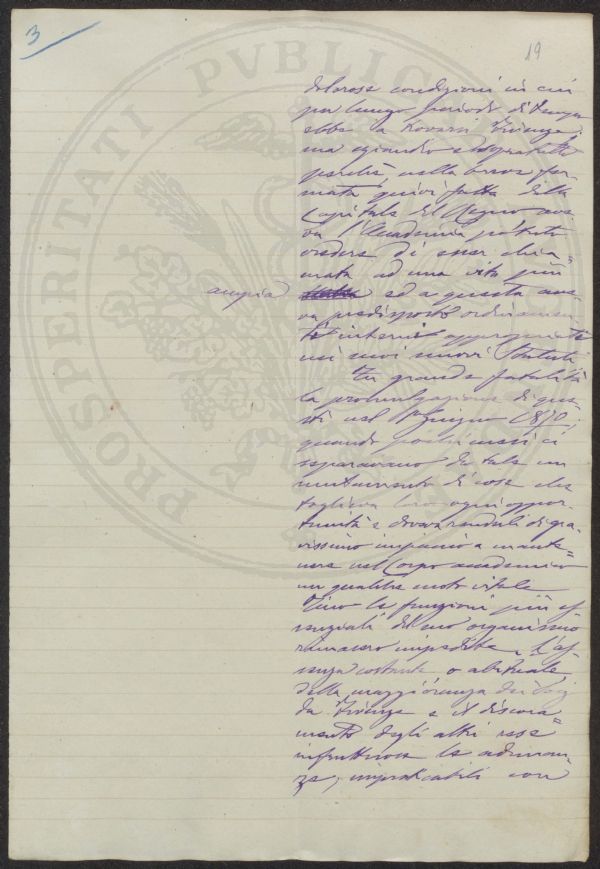 3
19
dolorose condizioni in cui
per lungo periodo di tempo
ebbe a trovarsi Firenze,
ma eziandio e sopratutto
perchè, nella breve fer-
mata quivi fatta della
Capitale del Regno ave-
va l'Accademia potuto
credere di esser chia=
mata ad una vita più
ampia ed a questa ave-
va predisposto ordinamen-
ti interni appropriati
nei suoi nuovi Statuti.
Fu grande fatalità
la promulgazione di que-
sti nel 1° Giugno 1870,
quando pochi mesi ci
separavano da tale un
mutamento di cose che
toglieva loro ogni oppor-
tunità e dovea renderli di gra-
vissimo impaccio a mante=
nere nel Corpo accademico
un qualche moto vitale
Fino le funzioni più es-
senziali del suo organismo
rimasero impedite. L'as-
senza costante o abituale
della maggioranza dei Soci
da Firenze e il discora=
mento degli altri rese
infruttuose le adunan-
ze, impraticabili con
PROSPERITATI PVBLICAE